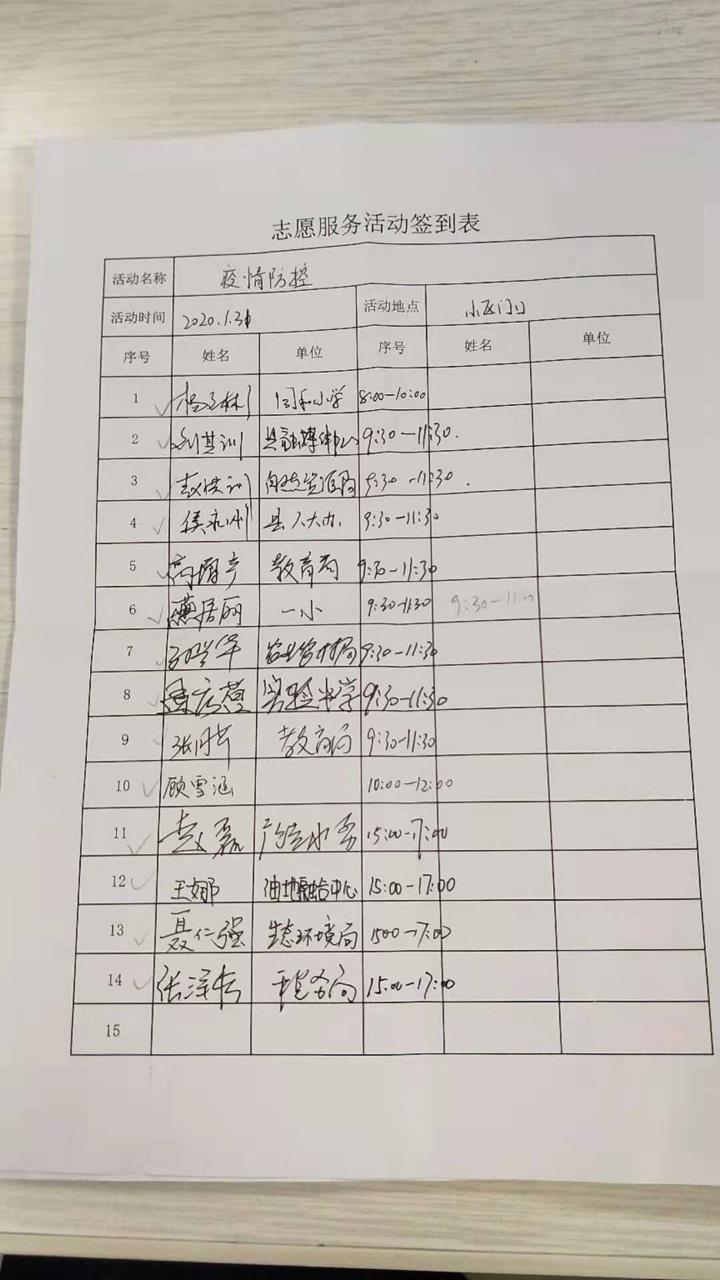 志愿服务活动签到表
活动名称 疫情防控
活动时间 2020.1.31 活动地点 小区门口
序号 姓名 单位 序号 姓名 单位
1 8:00-10:00
2 刘其训 县融媒体中心 9:30-11:30.
3 赵洪训 自然资源局 9:30-11:30.
4 侯永 县人大办 9:30-11:30
5 教育局 9:30-11:30
6 居丽 一小 9:30-11:30 9:30-11:00
7 华 9:30-11:30
8 实验中学 9:30-11:30
9 张 教育局 9:30-11:30
10 顾雪涵 10:00-12:00
11 赵磊 15:00-17:00
12 王娜 中心 15:00-17:00
13 聂仁强 生态环境局 1500-17:00
14 张泽 税务局 15:00-17:00
15